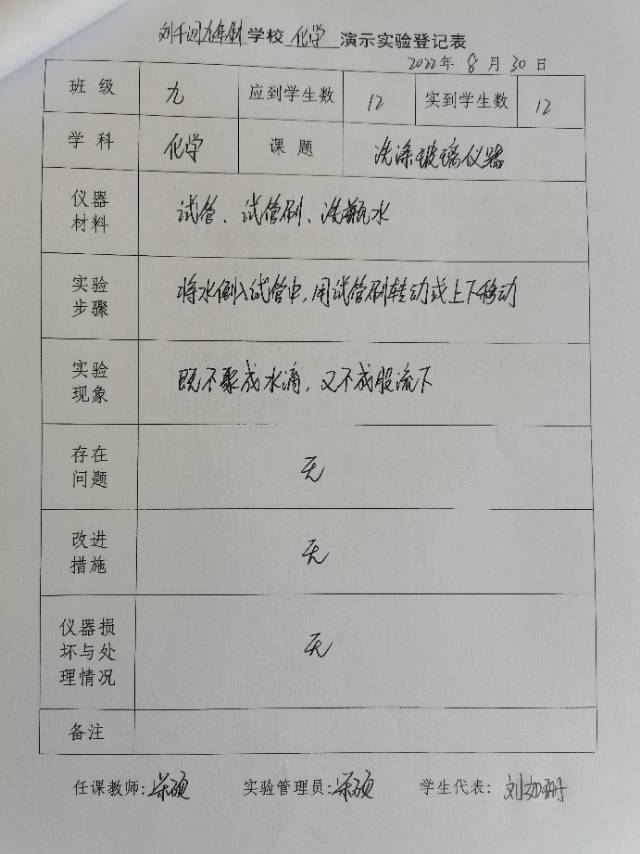 刘千词九年制学校 化学 演示实验登记表
2022年 8 月 30 日
班 级 九 应到学生数 12 实到学生数 12
学 科 化学 课 题 洗涤玻璃仪器
仪器
材料
试管、试管刷、洗瓶水
实验
步骤
将水倒入试管中,用试管刷转动或上下移动
实验
现象
既不聚成水滴,又不成股流下
存在
问题
无
改进
措施
无
仪器损
坏与处
理情况
无
备注
任课教师: 实验管理员: 学生代表: 刘如珊